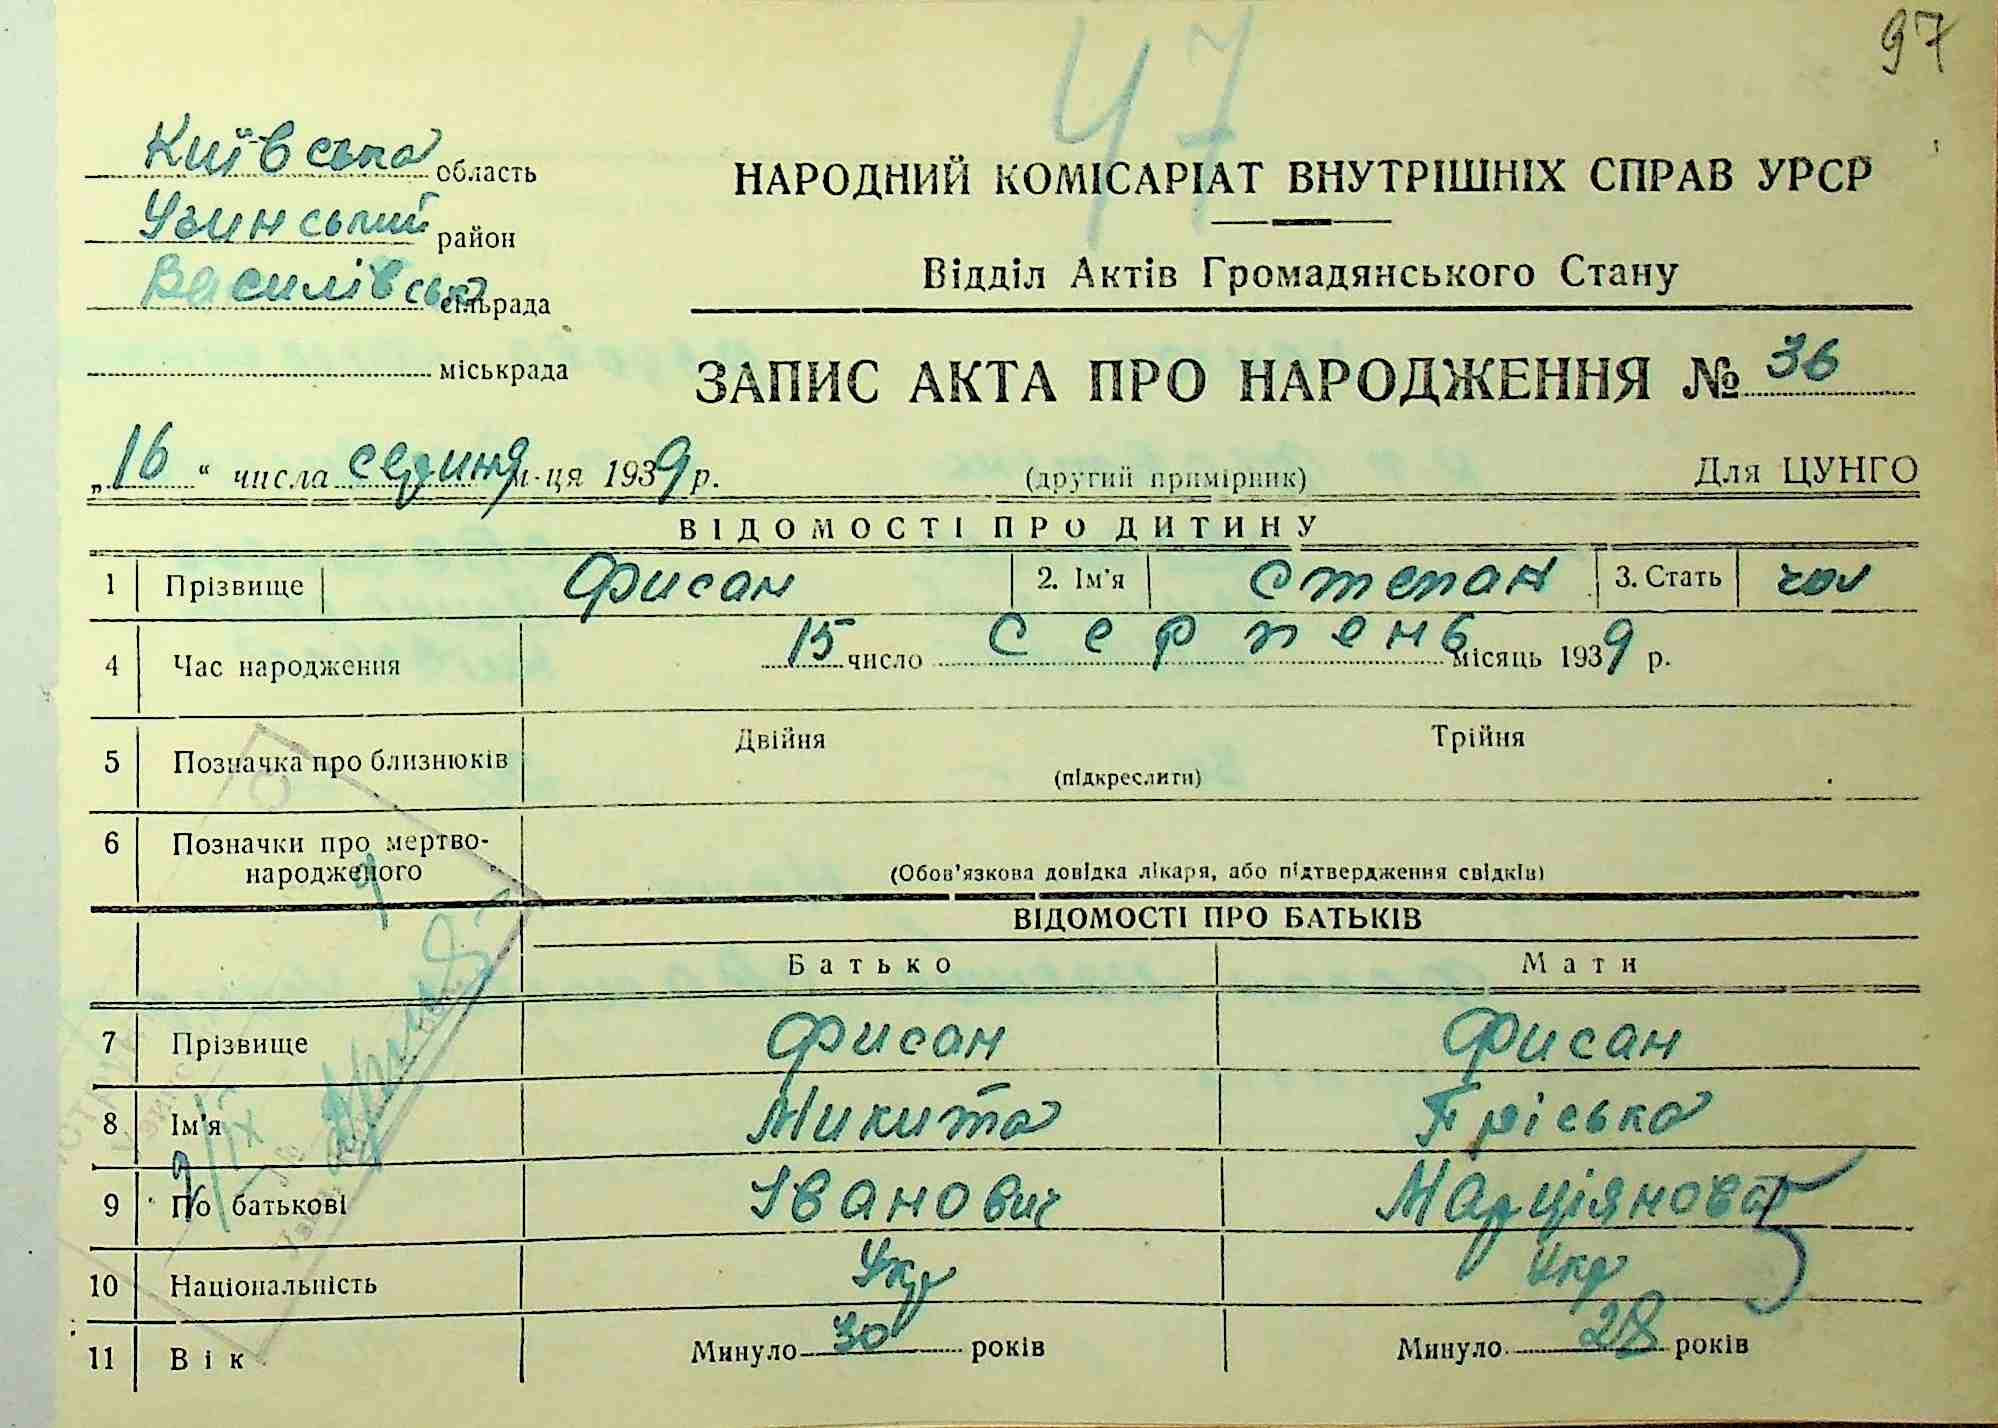 97
47
Київська область
Узинський район
Василівська сільрада
міськрада
НАРОДНИЙ КОМІСАРІАТ ВНУТРІШНІХ СПРАВ УРСР
Відділ Актів Громадянського Стану
ЗАПИС АКТА ПРО НАРОДЖЕННЯ № 36
„16“ числа серпня м-ця 1939 р. (другий примірник) Для ЦУНГО
ВІДОМОСТІ ПРО ДИТИНУ
1 Прізвище Фисан 2. Ім'я Степан 3. Стать чол
4 Час народження 15 число Серпень місяць 1939 р.
5 Позначка про близнюків Двійня Трійня
(підкреслити)
6 Позначки про мертво-
народженого (Обов'язкова довідка лікаря, або підтвердження свідків)
ВІДОМОСТІ ПРО БАТЬКІВ
Батько Мати
7 Прізвище Фисан Фисан
8 Ім'я Микита Пріська
9 По батькові Іванович Марціянова
10 Національність Укр Укр
11 Вік Минуло 30 років Минуло 28 років